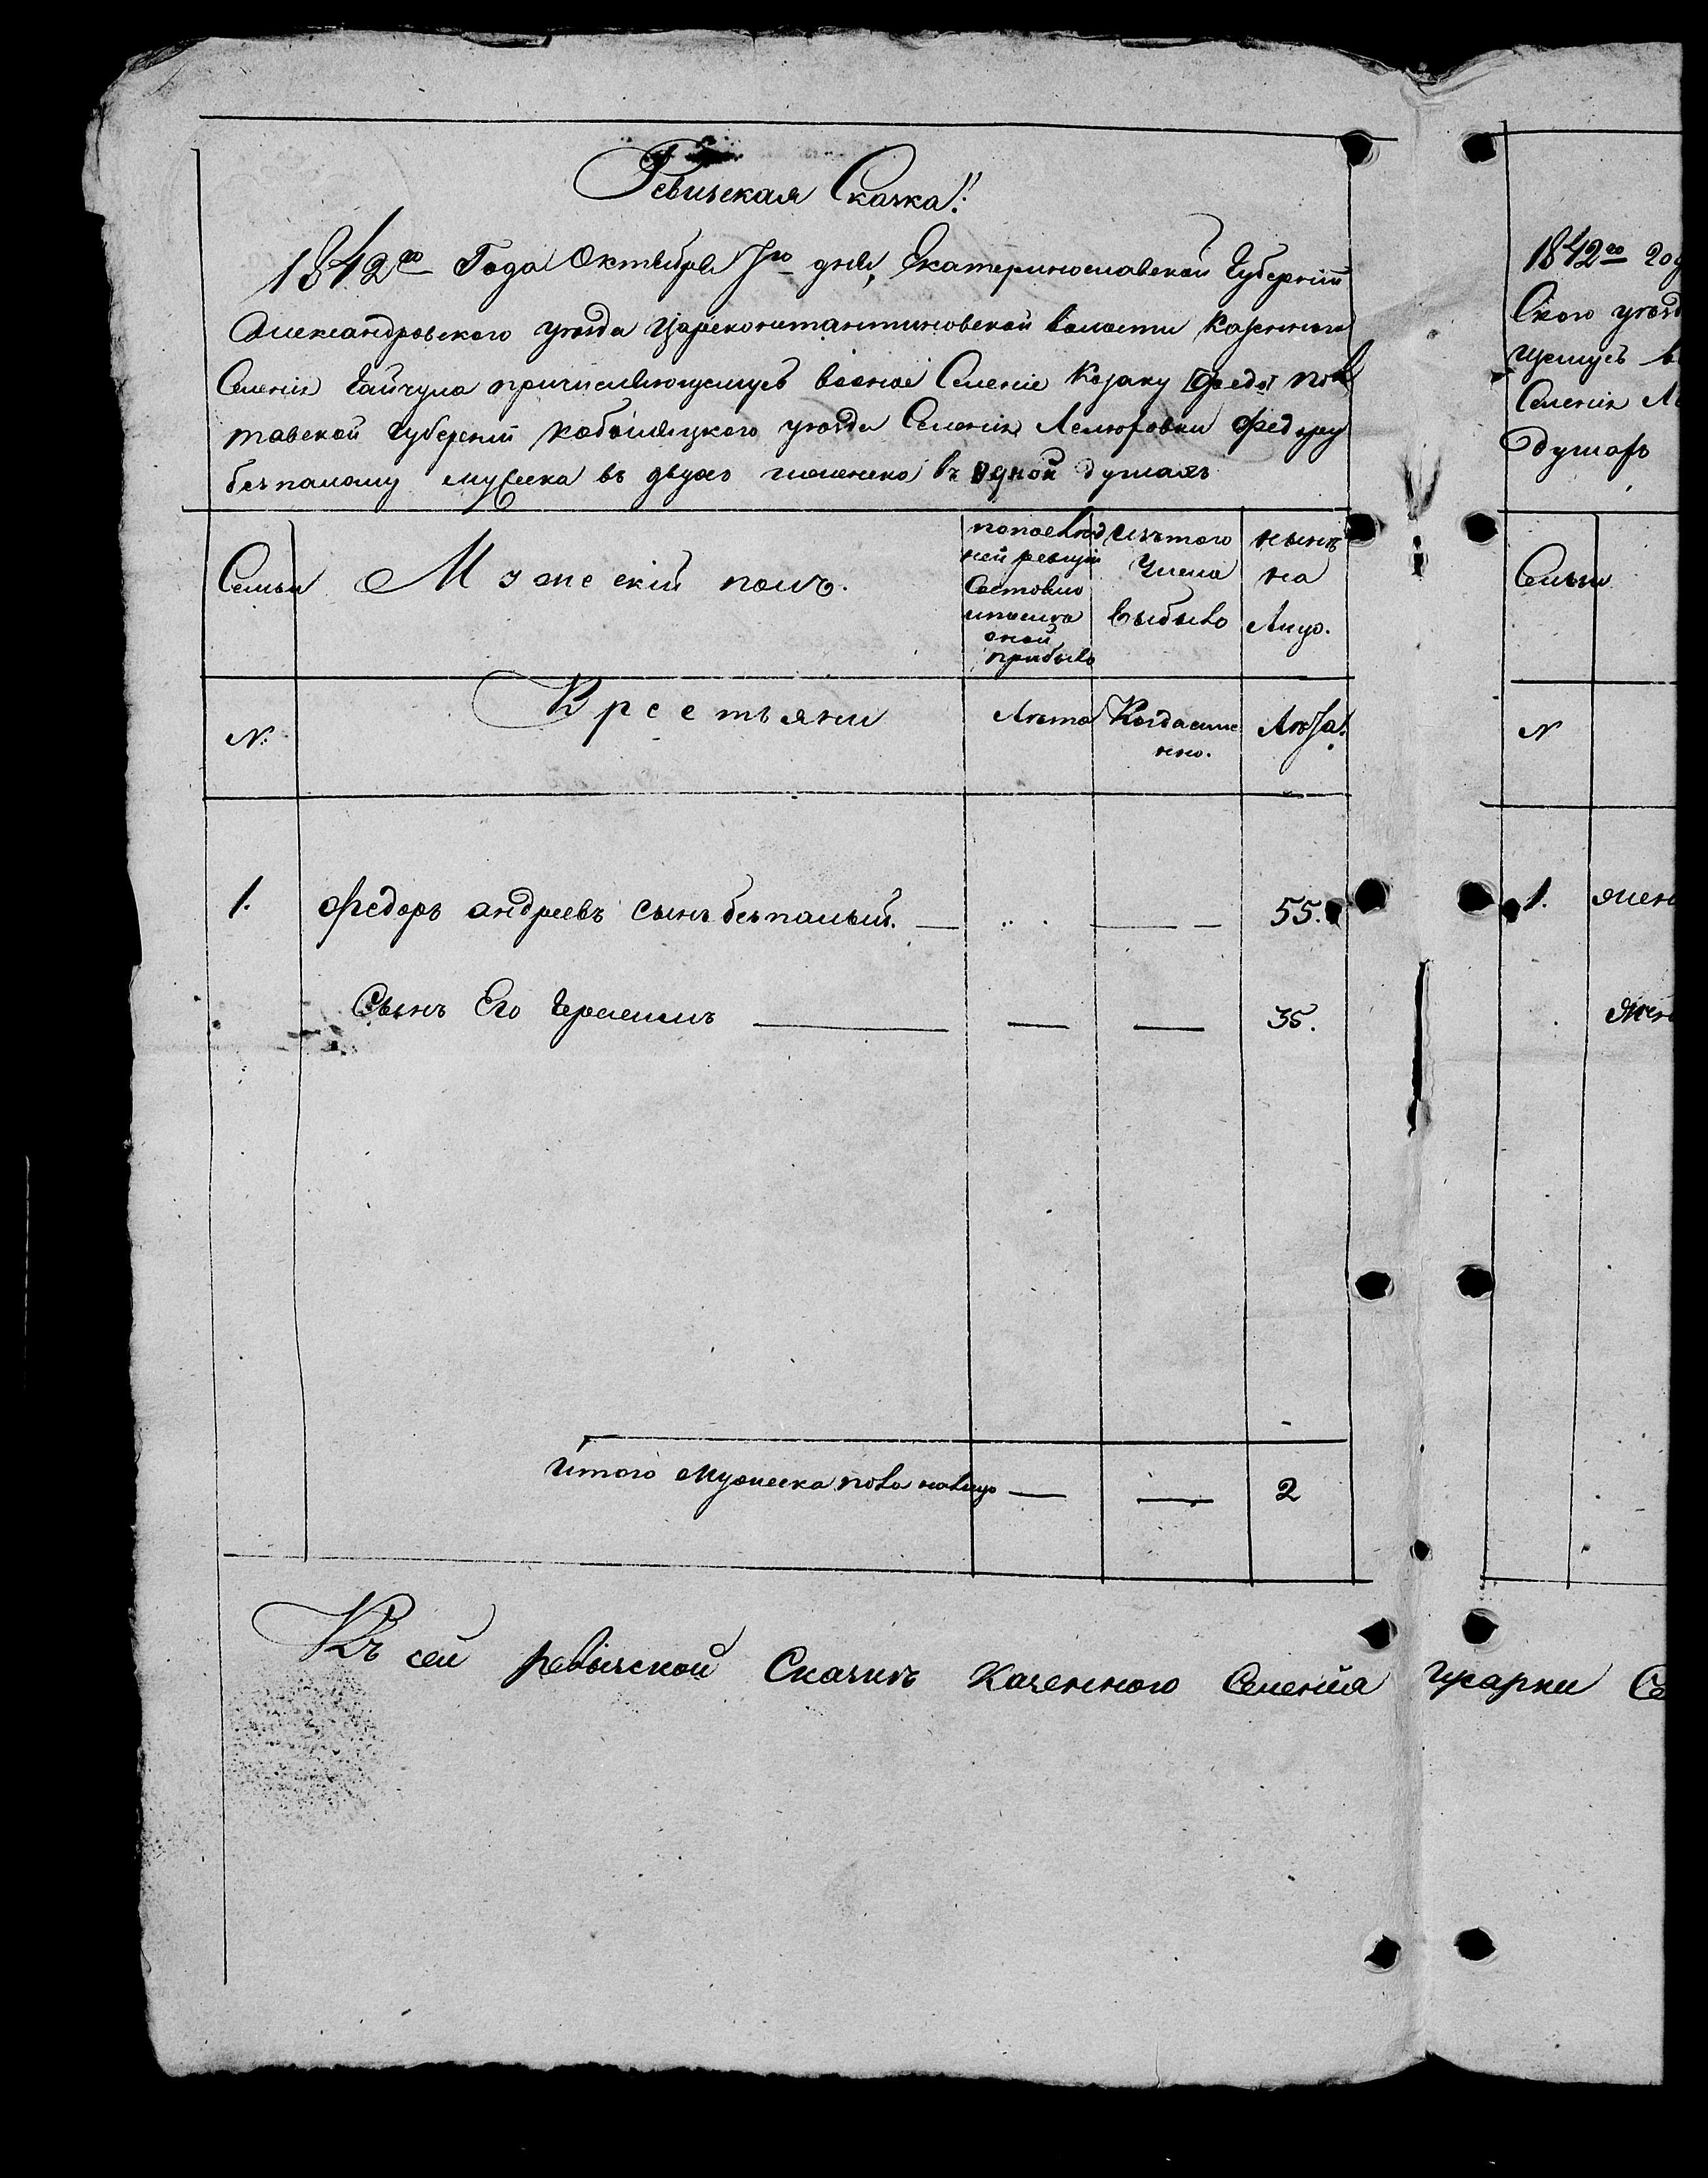 Ревизская Сказка!
1842го Года Октября 7го дня, Екатеринославской Губернии
Александровского уезда Цареконстантиновской волости Казенного
Селенія Гайчула причисляющемусь военое Селеніе Козаку Пол
тавской Губерніи Кобыляцкого уезда Селенія Лелюховки Федору
безпалому мужеска въ двухъ женска въ одной душахъ
Семьи
Мужескій полъ.
попослед
ней ревизіи
Состояло
и после
оной
прибыло
изътого
Числа
выбыло
ныне
на
Лицо.
№
Крестьяни
Лета
Когда имен
нно.
Лета.
1.
Федоръ андреевъ сынъ безпалый.
55.
Сынъ Его Герасимъ
35.
Итого Мужеска пола налицо
2
Къ сей ревизской Сказки Казенного Селенія
1842го год
Ского уезд
щемусь в
Селенія Ле
душахъ
Семьи
№
1. жен
жен